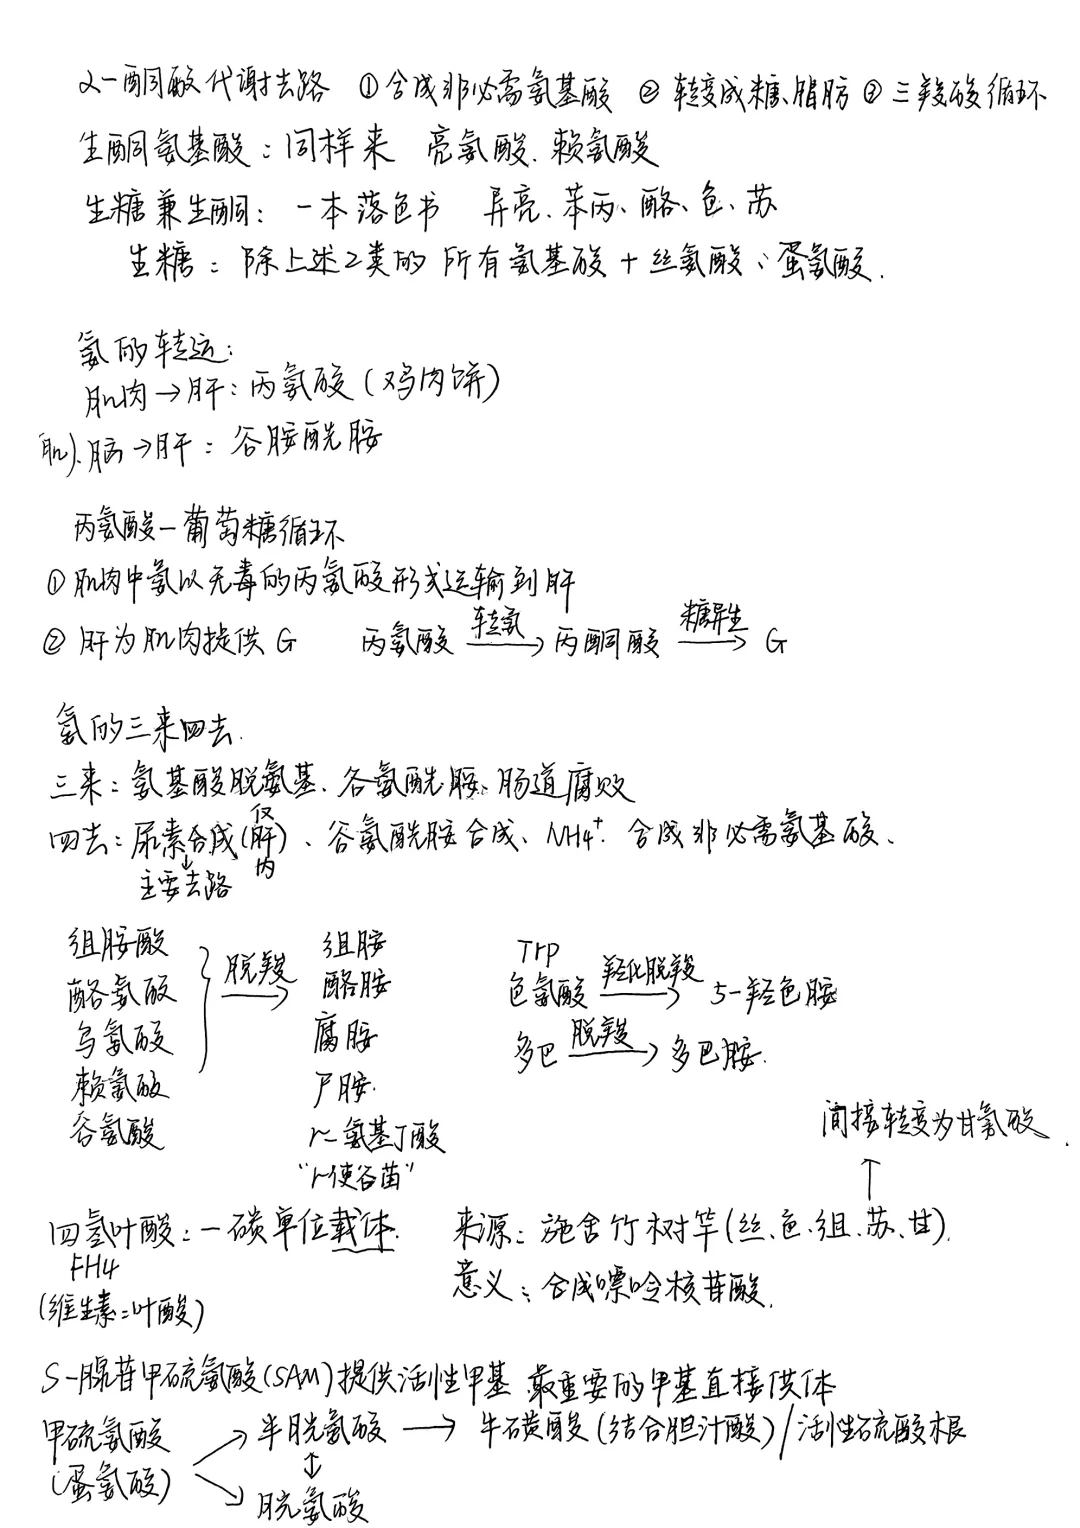 α-酮酸代谢去路 ①合成非必需氨基酸 ②转变成糖、脂肪 ③三羧酸循环
生酮氨基酸：同样来 亮氨酸、赖氨酸
生糖兼生酮：一本落色书 异亮、苯丙、酪、色、苏
生糖：除上述2类的所有氨基酸+丝氨酸、蛋氨酸.
氨的转运：
肌肉→肝：丙氨酸(鸡肉饼)
肌、脑→肝：谷胺酰胺
丙氨酸-葡萄糖循环
①肌肉中氨以无毒的丙氨酸形式运输到肝
②肝为肌肉提供G 丙氨酸 转氨→ 丙酮酸 糖异生→ G
氨的三来四去.
三来：氨基酸脱氨基、谷氨酰胺、肠道腐败
四去：尿素合成(仅肝内)、谷氨酰胺合成、NH4+、合成非必需氨基酸、
↓
主要去路
组胺酸 } 脱羧→ 组胺 Trp
酪氨酸 酪胺 色氨酸 羟化脱羧→ 5-羟色胺
鸟氨酸 腐胺 多巴 脱羧→ 多巴胺.
赖氨酸 尸胺.
谷氨酸 r-氨基丁酸 间接转变为甘氨酸.
"r使谷苗" ↑
四氢叶酸：一碳单位载体. 来源：施舍竹树竿(丝、色、组、苏、甘).
FH4 意义：合成嘌呤核苷酸.
(维生素：叶酸)
S-腺苷甲硫氨酸(SAM)提供活性甲基 最重要的甲基直接供体
甲硫氨酸 → 半胱氨酸 → 牛磺酸(结合胆汁酸)/活性硫酸根
(蛋氨酸) ↕
→ 胱氨酸